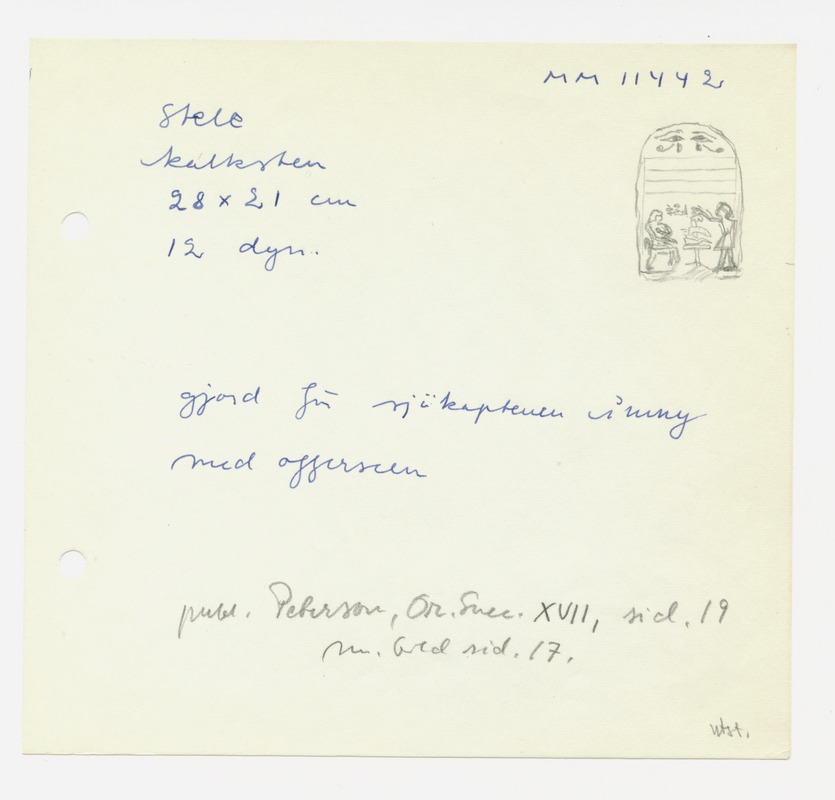 MM 11442
Stele
kalksten
28 x 21 cm
12 dyn.
gjord för sjökaptenen imny
med offerscen
publ. Peterson, Or. Suec. XVII, sid. 19
m. bild sid. 17.
utst.